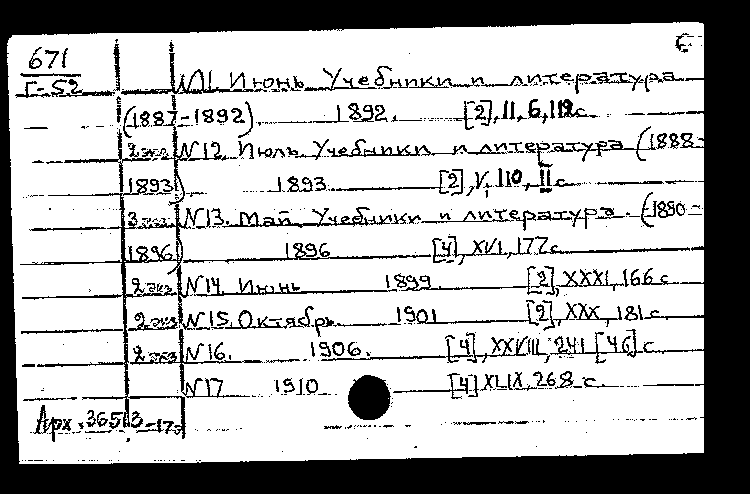 671
Г-52
№11. Июнь Учебники и литература
(1887-1892). 1892. [2], II, 6, 112 с.
2 экз №12. Июль. Учебники и литература (1888-
1893). 1893. [2], V, 110, II с.
3 экз. №13. Май. Учебники и литература. (1890-
1896) 1896 [4], XVI, 177 с.
2 экз №14. Июнь 1899. [2], XXXI, 166 с
2 экз №15. Октябрь. 1901 [2], XXX, 181 с.
2 экз №16. 1906. [4], XXVIII, 241 [46] с.
№17 1910 [4] XLIX, 268 с.
Арх. 36513